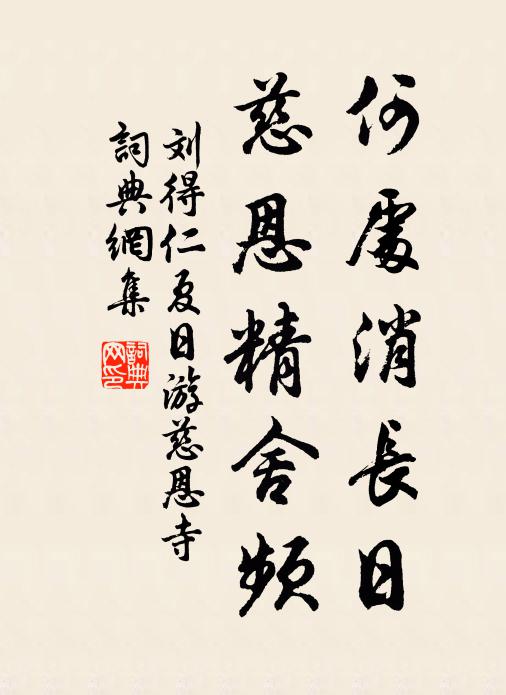 何處消長日
慈恩精舍頻
刘得仁夏日游慈恩寺
詞典網集
詞典網印